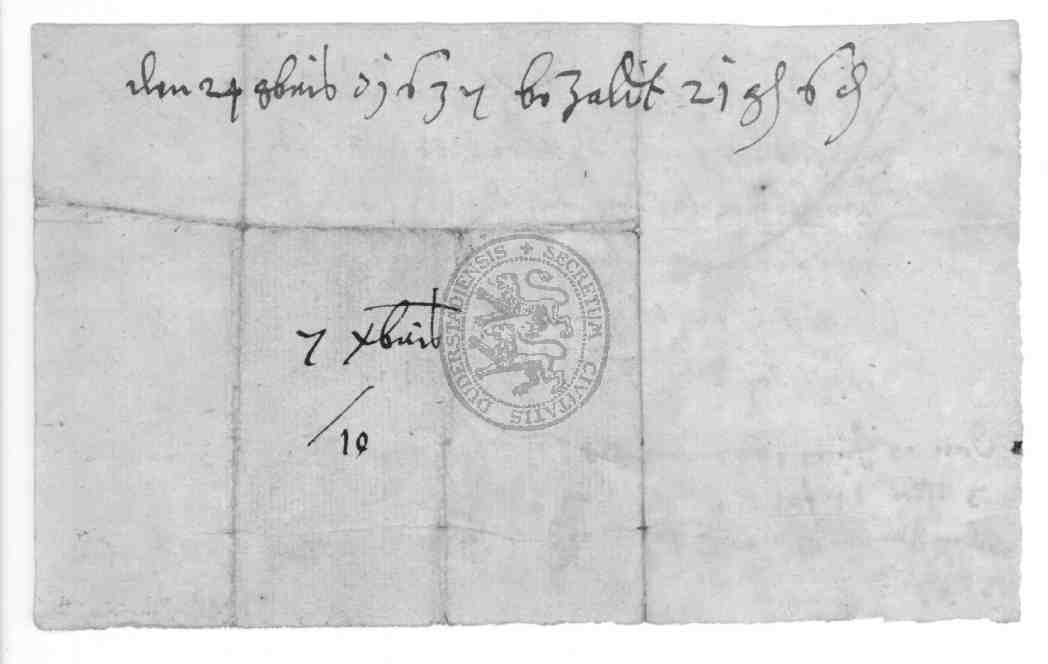 den 24 9bris 1637 bezalt 21 gl 6 d
7 Xbris
/10
SECRETUM CIVITATIS DUDERSTADIENSIS